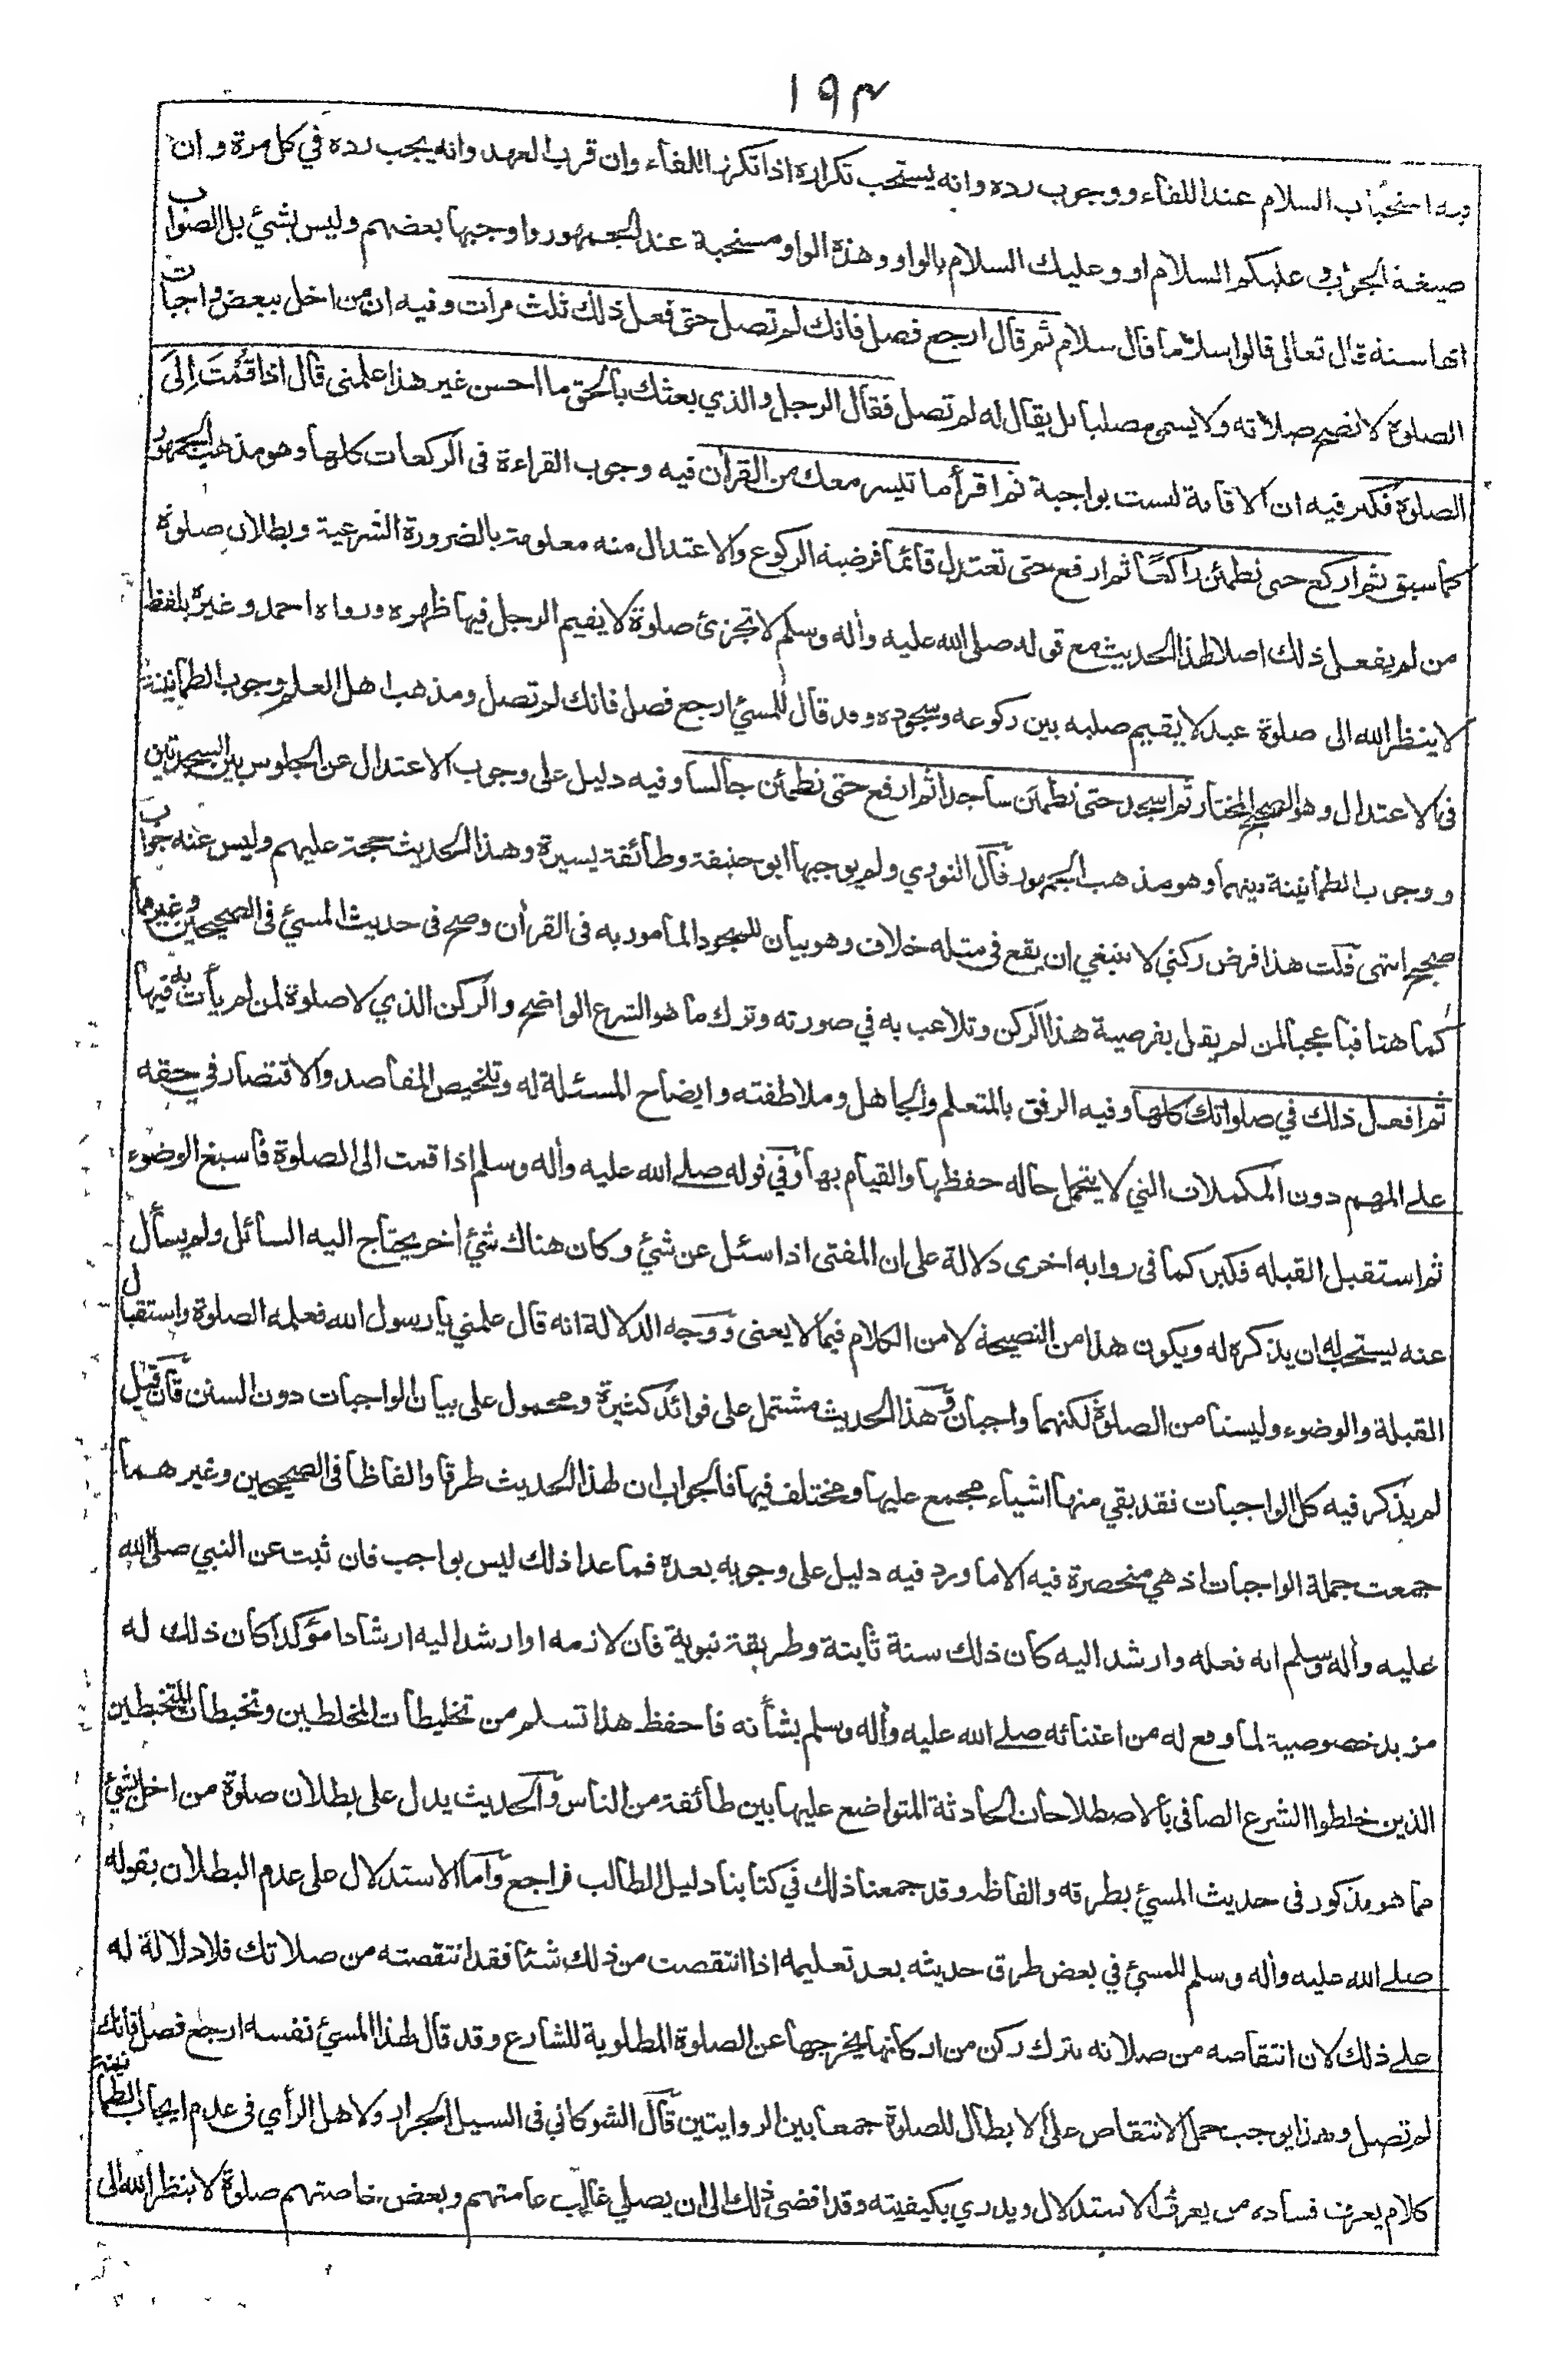 ١٩٣
فيه استحباب السلام عند اللقاء ووجوب رده وانه يستحب تكراره اذا تكرر اللقاء وان قرب العهد وانه يجب رده في كل مرة وان
صيغة الجواب وعليكم السلام او وعليك السلام بالواو وهذه الواو مستحبة عند الجمهور واوجبها بعضهم وليس بشئ بل الصواب
انها سنة قال تعالى قالوا سلاما قال سلام ثم قال ارجع فصل فانك لم تصل حتى فعل ذلك ثلث مرات وفيه ان من اخل ببعض واجبات
الصلوة لا تصح صلاته ولا يسمى مصليا بل يقال له لم تصل فقال الرجل والذي بعثك بالحق ما احسن غير هذا علمني قال اذا قُمْتَ اِلَى
الصلوة فكبر فيه ان الاقامة ليست بواجبة ثم اقرأ ما تيسر معك من القرأن فيه وجوب القراءة فى الركعات كلها وهو مذهب الجمهور
كما سبق ثم اركع حتى تطمئن راكعًا ثم ارفع حتى تعتدل قائما فرضية الركوع والاعتدال منه معلومة بالضرورة الشرعية وبطلان صلوة
من لم يفعل ذلك اصلا لهذا الحديث مع قوله صلى الله عليه وأله وسلم لا تجزئ صلوة لا يقيم الرجل فيها ظهره ورواه احمد وغيره بلفظ
لا ينظر الله الى صلوة عبد لا يقيم صلبه بين ركوعه وسجوده وقد قال للمسئ ارجع فصل فانك لم تصل ومذهب اهل العلم وجوب الطمانينة
فى الاعتدال وهو الصحيح المختار ثم اسجد حتى تطمئن ساجدا ثم ارفع حتى تطمئن جالسا وفيه دليل على وجوب الاعتدال عن الجلوس بين السجدتين
ووجوب الطمانينة بينهما وهو مذهب الجمهور قال النووي ولم يوجبها ابو حنيفة وطائفة يسيرة وهذا الحديث حجة عليهم وليس عنه جواب
صحيح انتهى قلت هذا فرض ركني لا ينبغي ان يقع فى مثله خلاف وهو بيان للسجود المامور به فى القرأن وصح فى حديث المسئ فى الصحيحين وغيرهما
كما هنا فيا عجبا لمن لم يقل بفرضية هذا الركن وتلاعب به في صورته وترك ما هو الشرع الواضح والركن الذي لا صلوة لمن لم يأت به فيها
ثم افعل ذلك في صلواتك كلها وفيه الرفق بالمتعلم والجاهل وملاطفته وايضاح المسئلة له وتلخيص المقاصد والاقتصار في حقه
على المهم دون المكملات التي لا يتحمل حاله حفظها والقيام بها وفي قوله صلى الله عليه وأله وسلم اذا قمت الى الصلوة فأسبغ الوضوء
ثم استقبل القبله فكبر كما فى روايه اخرى دلالة على ان المفتى اذا سئل عن شئ وكان هناك شئ أخر يحتاج اليه السائل ولم يسأل
عنه يستحب له ان يذكره له ويكون هذا من النصيحة لا من الكلام فيما لا يعنى ووجه الدلالة انه قال علمني يا رسول الله فعلمه الصلوة واستقبال
القبلة والوضوء وليستا من الصلوة لكنهما واجبان وهذا الحديث مشتمل على فوائد كثيرة ومحمول على بيان الواجبات دون السنن فان قيل
لم يذكر فيه كل الواجبات فقد بقي منها اشياء مجمع عليها ومختلف فيها فالجواب ان لهذا الحديث طرقا والفاظا فى الصحيحين وغيرهما
جمعت جملة الواجبات اذ هي منحصرة فيه الا ما ورد فيه دليل على وجوبه بعده فما عدا ذلك ليس بواجب فان ثبت عن النبي صلى الله
عليه وأله وسلم انه فعله وارشد اليه كان ذلك سنة ثابتة وطريقة نبوية فان لازمه او ارشد اليه ارشادا مؤكدا كان ذلك له
مزيد خصوصية لما وقع له من اعتنائه صلى الله عليه وأله وسلم بشأنه فاحفظ هذا تسلم من تخليطات المخلطين وتخبطات المتخبطين
الذين خلطوا الشرع الصافى بالاصطلاحات الحادثة المتواضع عليها بين طائفة من الناس والحديث يدل على بطلان صلوة من اخل بشئ
مما هو مذكور فى حديث المسئ بطرقه والفاظه وقد جمعنا ذلك في كتابنا دليل الطالب فراجع واما الاستدلال على عدم البطلان بقوله
صلى الله عليه وأله وسلم للمسئ في بعض طرق حديثه بعد تعليمه اذا انتقصت من ذلك شئا فقد انتقصته من صلاتك فلا دلالة له
على ذلك لان انتقاصه من صلاته بترك ركن من اركانها يخرجها عن الصلوة المطلوبة للشارع وقد قال لهذا المسئ نفسه ارجع فصل فانك
لم تصل وهذا يوجب حمل الانتقاص على الابطال للصلوة جمعا بين الروايتين قال الشوكاني فى السيل الجرار ولاهل الرأي فى عدم ايجاب الطمانينة
كلام يعرف فساده من يعرف الاستدلال ويدري بكيفيته وقد افضى ذلك الى ان يصلي غالب عامتهم وبعض خاصتهم صلوة لا ينظر الله الى